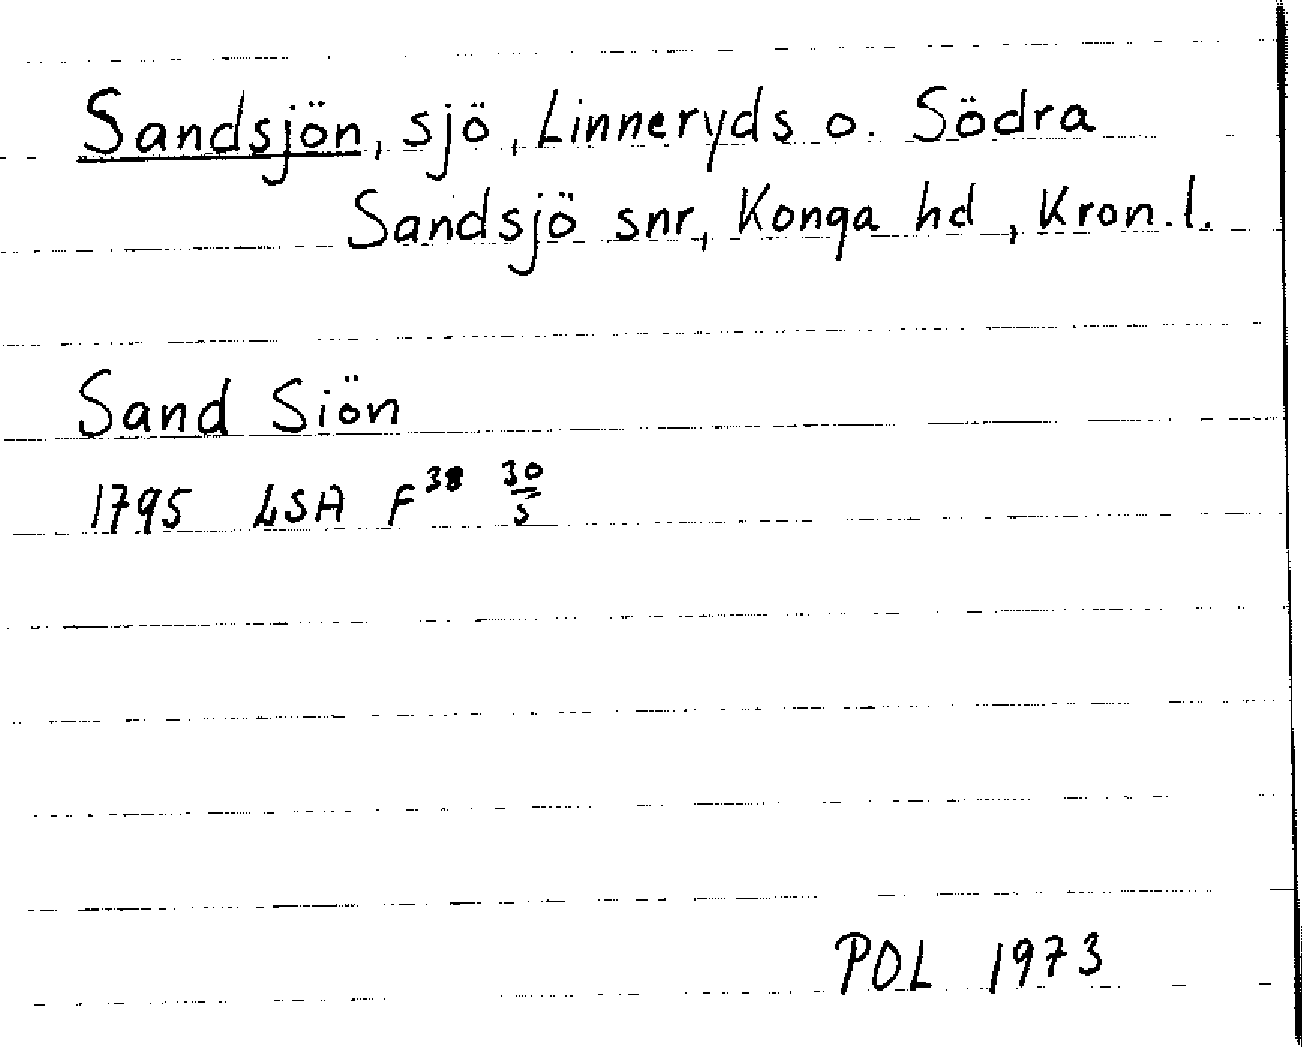 Sandsjön, sjö, Linneryds o. Södra
Sandsjö snr, Konga hd, Kron. l.
Sand Siön
1795 LSA F³⁸ 30/5
POL 1973